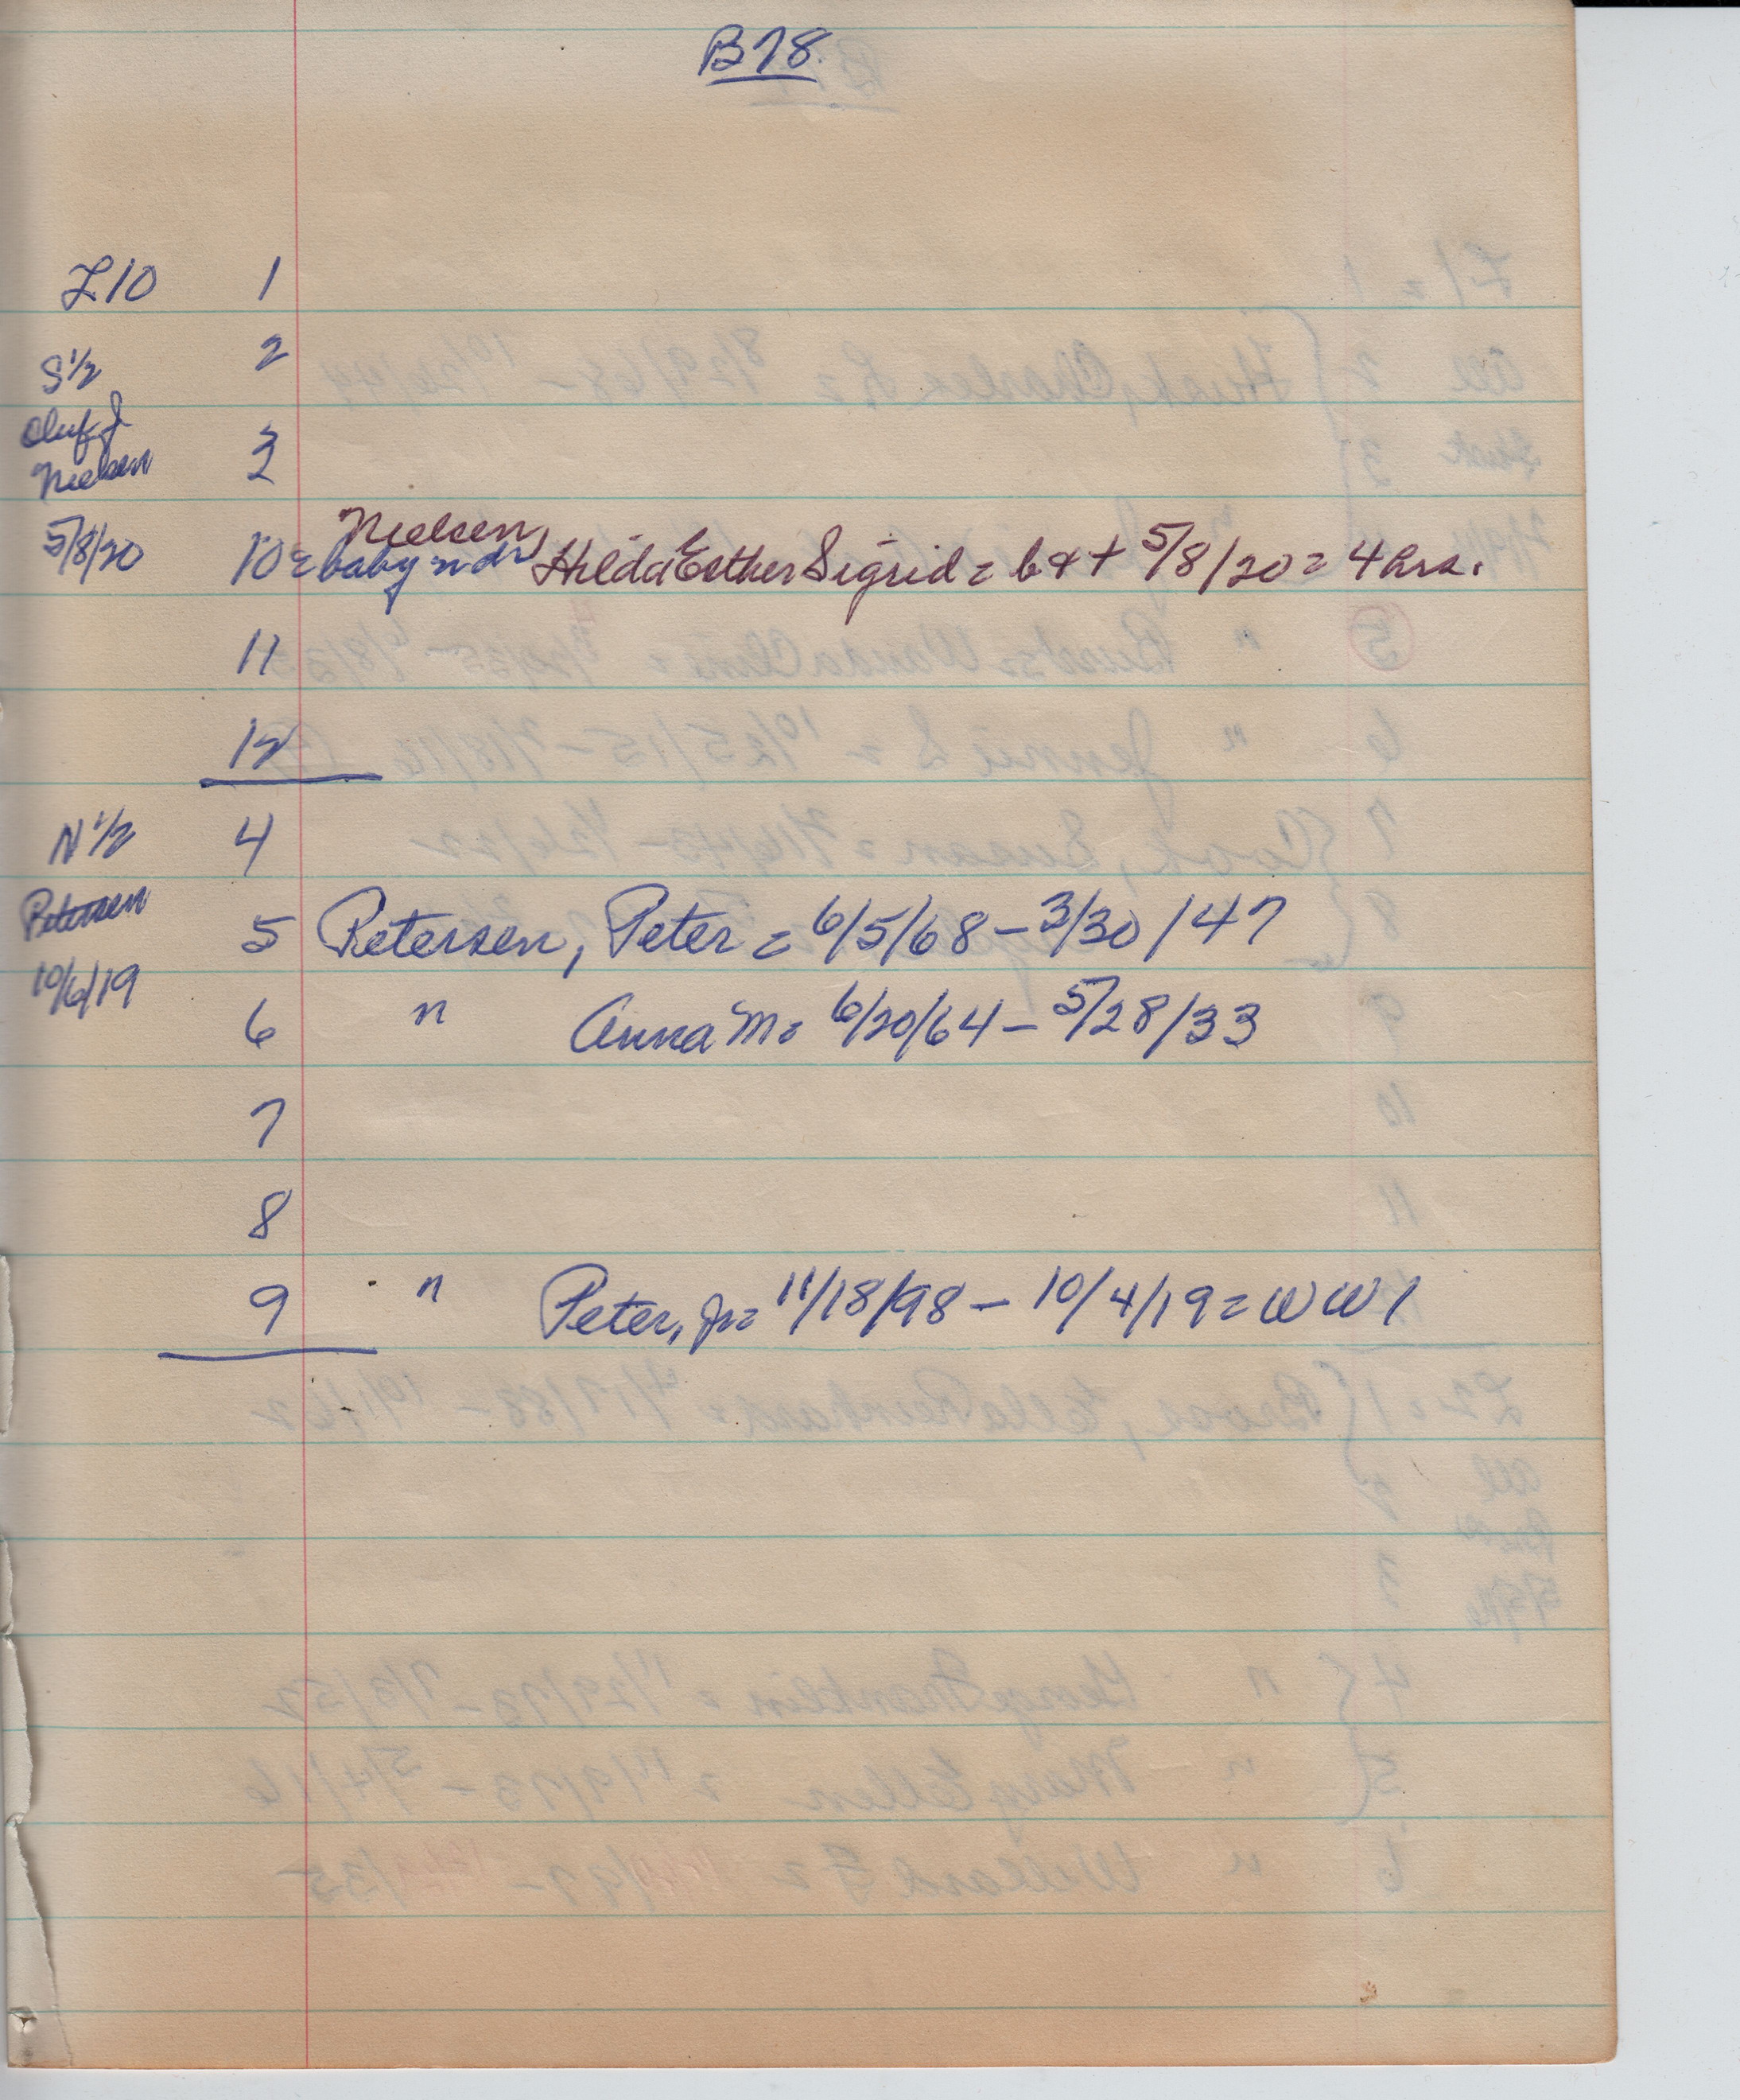 B78.
L10 1
S 1/2 2
Oluf J
Nielsen 3
Nielsen,
5/8/20 10 = baby n dr Hilda Esther Sigrid = b & + 5/8/20 = 4 hrs.
11
12
N 1/2 4
Petersen 5 Petersen, Peter = 6/5/68 - 3/30/47
10/6/19 6 " Anna M = 6/20/64 - 5/28/33
7
8
9 " Peter, Jr = 11/18/98 - 10/4/19 = WW1